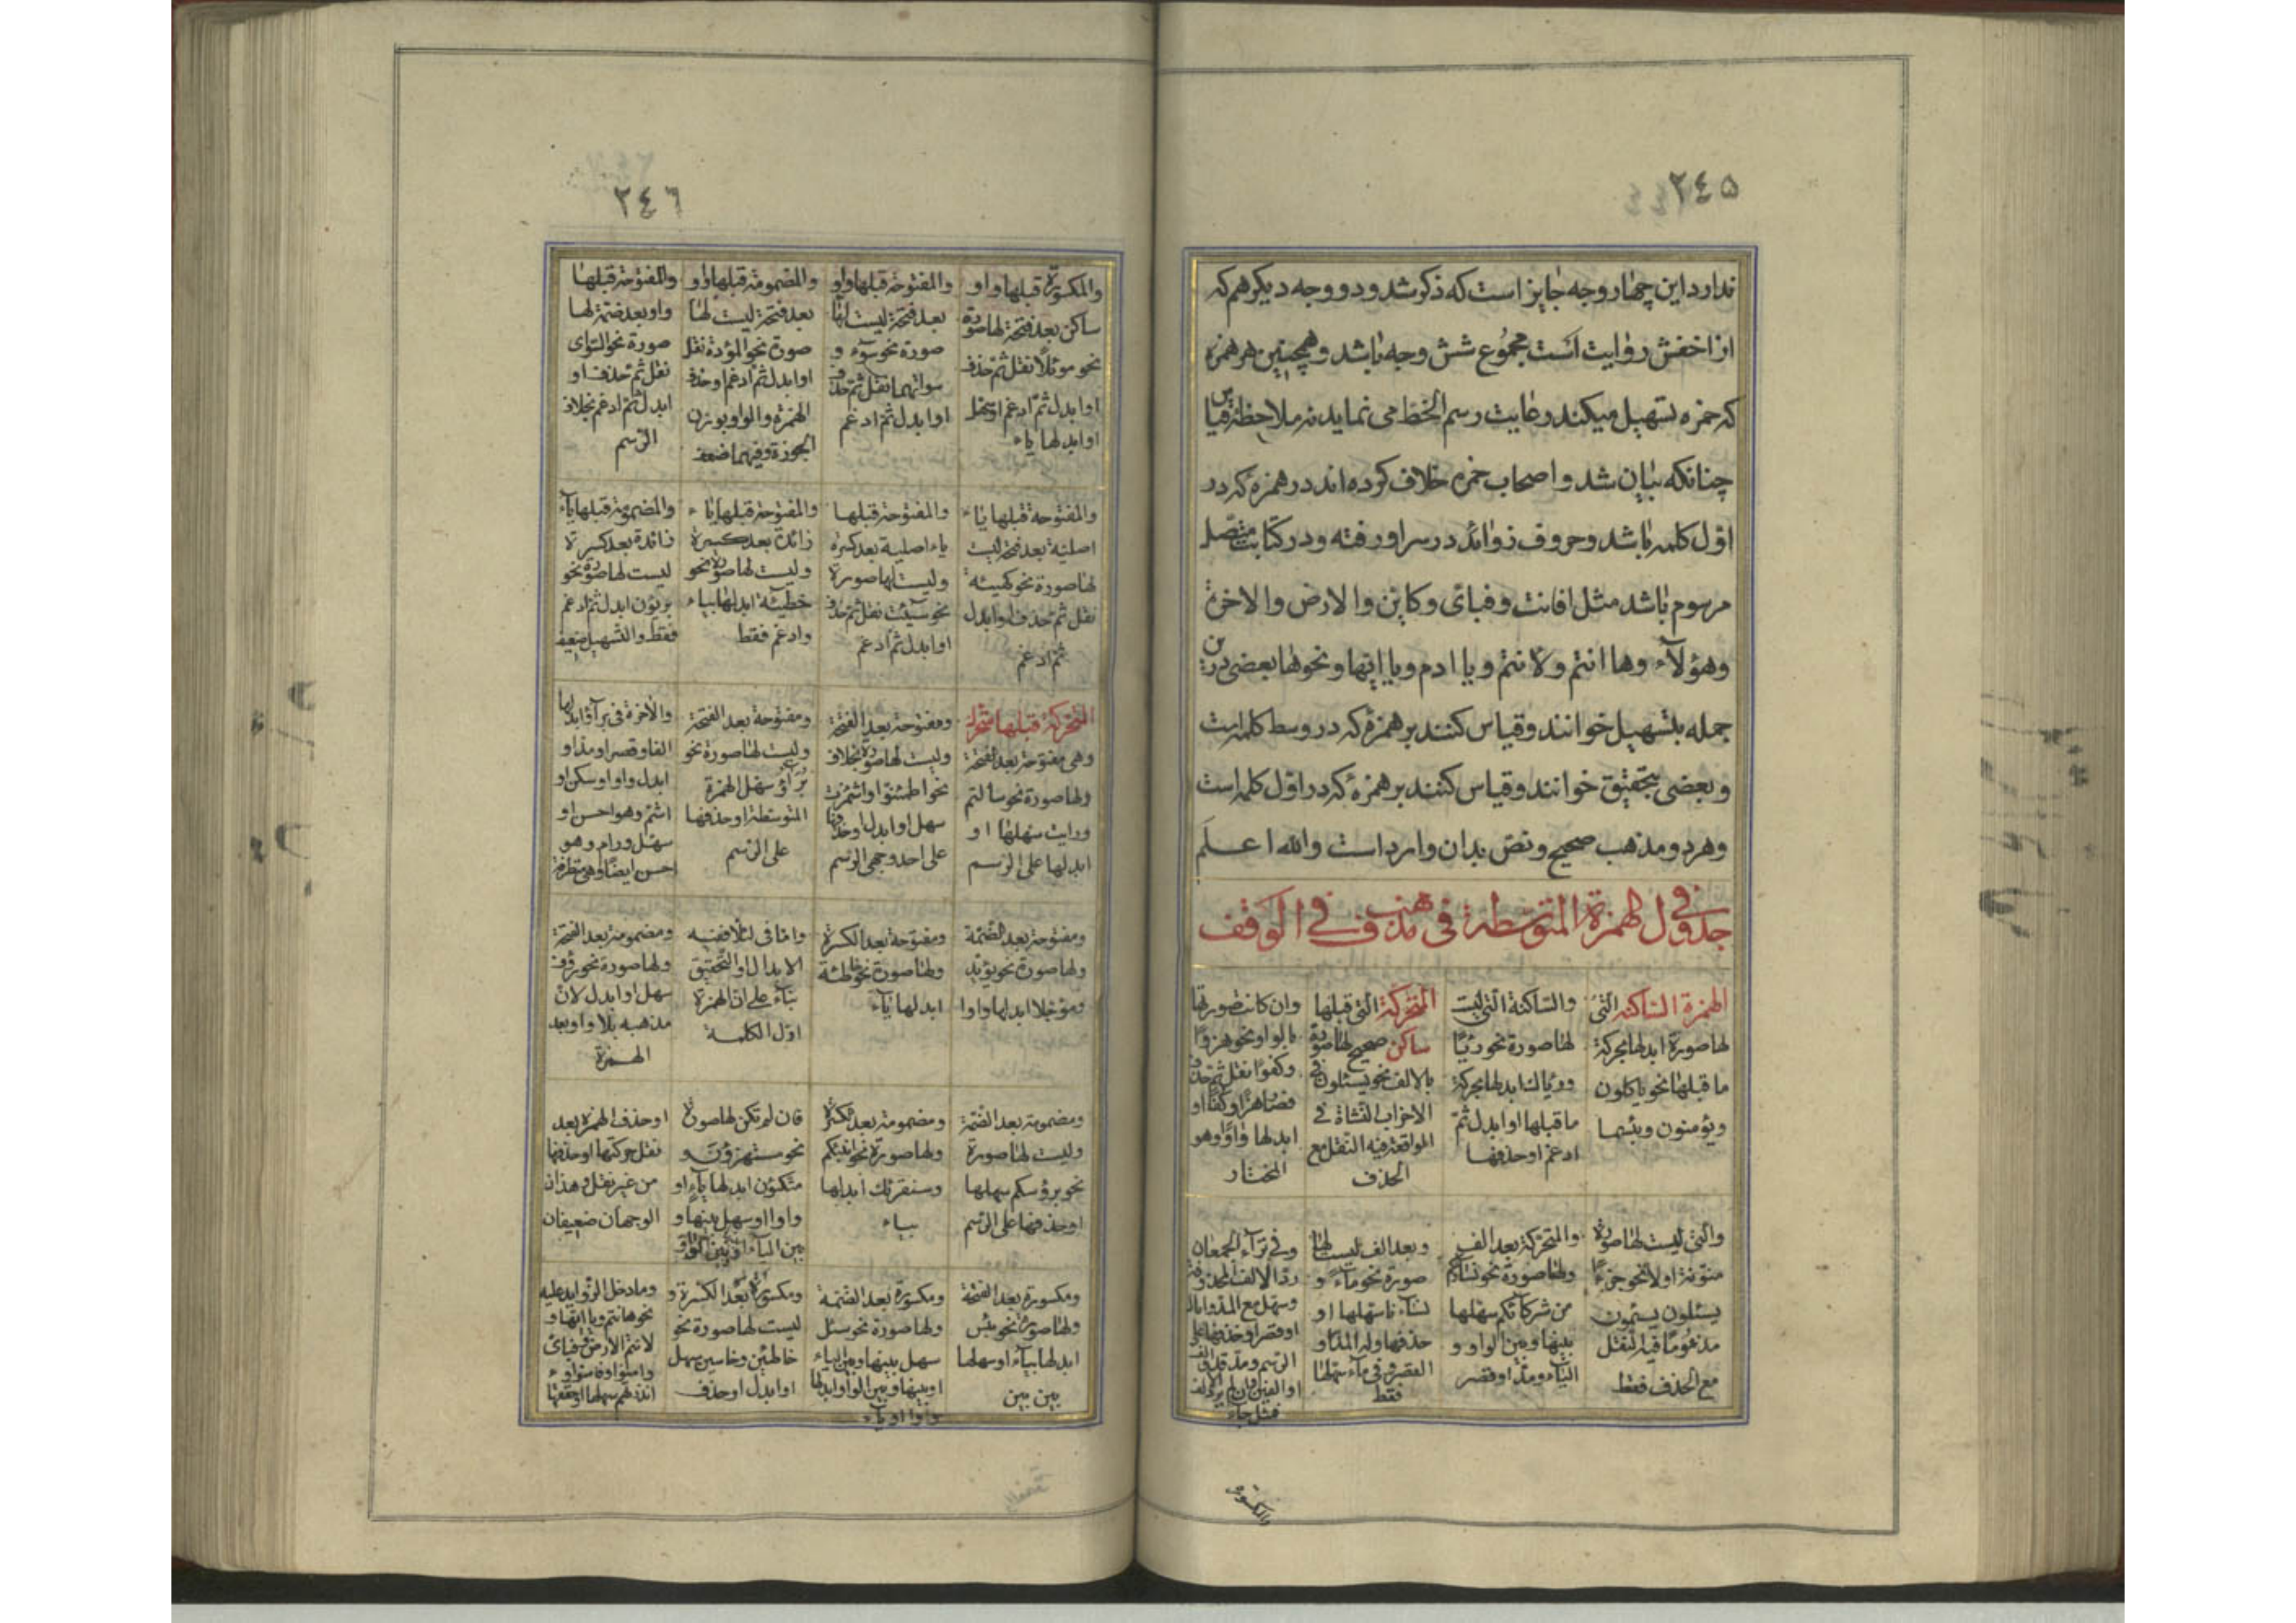 ٢٤٥
ندارد این چهار وجه جایز است که ذکر شد و دو وجه دیگر هم که
از اخفش روایت است مجموع شش وجه باشد و همچنین هر همزه
که حمزه تسهیل میکند رعایت رسم الخط می نماید نه ملاحظه قیاس
چنانکه بیان شد و اصحاب حمزه خلاف کرده اند در همزه که در
اول کلمه باشد و حروف زوائد در سر او رفته و در کتابت متصل
مرسوم باشد مثل افانت و فبای و کاین والارض والاخرة
وهؤلاء وها انتم ولانتم ویا ادم ویا ایها ونحوها بعضی درین
جمله بتسهیل خوانند و قیاس کنند بر همزه که در وسط کلمه است
و بعضی بتحقیق خوانند و قیاس کنند بر همزه که در اول کلمه است
و هر دو مذهب صحیح و نص بدان وارد است والله اعلم
جدول فی الهمزة المتوسطة فی مذهب فی الوقف
الهمزة الساکنه التی
لها صورة ابدلها بحرکة
ما قبلها نحو یاکلون
ویؤمنون وبئسما
والساکنة التی لیست
لها صورة نحو رئیا
ورؤیاک ابدلها بحرکة
ما قبلها او ابدل ثم
ادغم او حذفها
المتحرکة التی قبلها
ساکن صحیح لها صورة
بالالف نحو یسئلون فی
الاحزاب النشاة فی
الواقعة فیه النقل مع
الحذف
وان کانت صورتها
بالواو نحو هزوا
وکفوا نقل ثم حذف
فصار هزا وکفا او
ابدلها واوا وهو
المختار
والتی لیست لها صورة
منونة اولا نحو جزءا
یسئلون یسئمون
مذءوما فیه النقل
مع الحذف فقط
والمتحرکة بعد الف
ولها صورة نحو نساؤکم
من شرکائکم سهلها
بینها وبین الواو و
الیاء ومد او قصر
وبعد الف لیست لها
صورة نحو ماء و
نساءنا سهلها او
حذفها وله المد او
القصر وفی ماء سهلها
فقط
وفی تراء الجمعان
رد الالف المحذوفة
وسهل مع المد
او قصر او حذفها علی
الرسم ومد قدر الف
او الفین وان لم یرد الالف
فمثل جاء
والمکسورة
٢٤٦
والمکسورة قبلها واو
ساکن بعد فتحة لها صورة
نحو موئلا نقل ثم حذف
او ابدل ثم ادغم او سهل
او ابدلها یاء
والمفتوحة قبلها واو
بعد فتحة لیست لها
صورة نحو سوءة و
سواتهما نقل ثم حذف
او ابدل ثم ادغم
والمضمومة قبلها واو
بعد فتحة لیست لها
صورة نحو المؤدة نقل
او ابدل ثم ادغم او حذف
الهمزة والواو بوزن
الجوزة وفیهما ضعف
والمفتوحة قبلها
واو بعد ضمة لها
صورة نحو السوای
نقل ثم حذف او
ابدل ثم ادغم بخلاف
الرسم
والمفتوحة قبلها یاء
اصلیة بعد فتحة لیست
لها صورة نحو کهیئة
نقل ثم حذف او ابدل
ثم ادغم
والمفتوحة قبلها
یاء اصلیة بعد کسرة
ولیست لها صورة
نحو سیئت نقل ثم حذف
او ابدل ثم ادغم
والمفتوحة قبلها یاء
زائدة بعد کسرة
ولیست لها صورة نحو
خطیئة ابدلها بیاء
وادغم فقط
والمضمومة قبلها یاء
زائدة بعد کسرة
لیست لها صورة نحو
بریؤن ابدل ثم ادغم
فقط والتسهیل ضعیف
المتحرکة قبلها متحرک
وهی مفتوحة بعد الفتحة
ولها صورة نحو سالتم
ورایت سهلها او
ابدلها علی الرسم
ومفتوحة بعد الفتحة
ولیست لها صورة بخلاف
نحو اطمئنوا واشمئزت
سهل او ابدل او حذفها
علی احد وجهی الرسم
ومفتوحة بعد الفتحة
ولیست لها صورة نحو
برآؤ سهل الهمزة
المتوسطة او حذفها
علی الرسم
والاخرة فی برآؤا ابدلها
الفا وقصر او مد او
ابدل واوا وسکن او
اشم وهو احسن او
سهل ورام وهو
احسن ایضا وهی متطرفة
ومفتوحة بعد الضمة
ولها صورة نحو یؤید
ومؤجلا ابدلها واوا
ومفتوحة بعد الکسرة
ولها صورة نحو خاطئة
ابدلها یاء
واما فی لئلا ففیه
الابدال او التحقیق
بناء علی ان الهمزة
اول الکلمة
ومضمومة بعد الفتحة
ولها صورة نحو رؤف
سهل او ابدل لان
مذهبه بلا واو بعد
الهمزة
ومضمومة بعد الضمة
ولیست لها صورة
نحو برؤسکم سهلها
او حذفها علی الرسم
ومضمومة بعد الکسرة
ولها صورة نحو انبئکم
وسنقرئک ابدلها
بیاء
فان لم تکن لها صورة
نحو مستهزؤن و
متکؤن ابدلها یاء او
واوا او سهل بینها و
بین الیاء او بین الواو
او حذف الهمزة بعد
نقل حرکتها او حذفها
من غیر نقل وهذان
الوجهان ضعیفان
ومکسورة بعد الفتحة
ولها صورة نحو یئس
ابدلها بیاء او سهلها
بین بین
ومکسورة بعد الضمة
ولها صورة نحو سئل
سهل بینها وبین الیاء
او بینها وبین الواو او ابدلها
واوا او یاء
ومکسورة بعد الکسرة و
لیست لها صورة نحو
خاطئین وخاسئین سهل
او ابدل او حذف
وما دخل الزواید علیه
نحو هانتم ویا ایها و
لانتم الارض وفبای